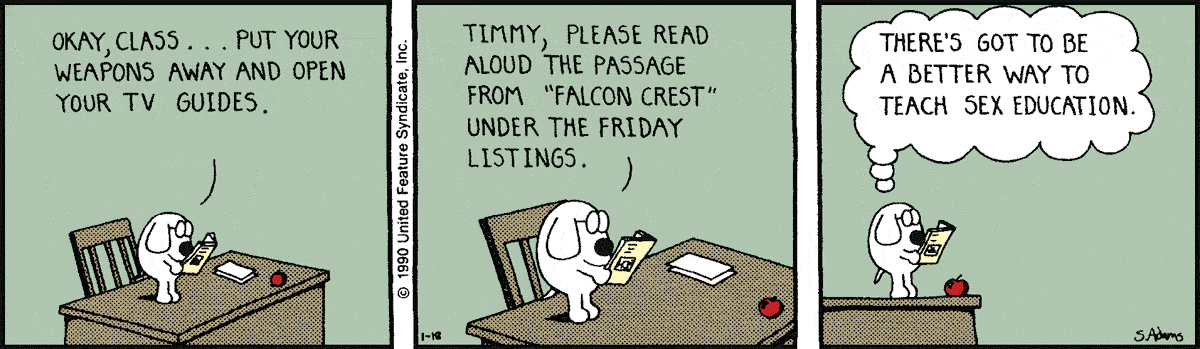 OKAY, CLASS... PUT YOUR
WEAPONS AWAY AND OPEN
YOUR TV GUIDES.
© 1990 United Feature Syndicate, Inc.
TIMMY, PLEASE READ
ALOUD THE PASSAGE
FROM "FALCON CREST"
UNDER THE FRIDAY
LISTINGS.
1-18
THERE'S GOT TO BE
A BETTER WAY TO
TEACH SEX EDUCATION.
S. Adams